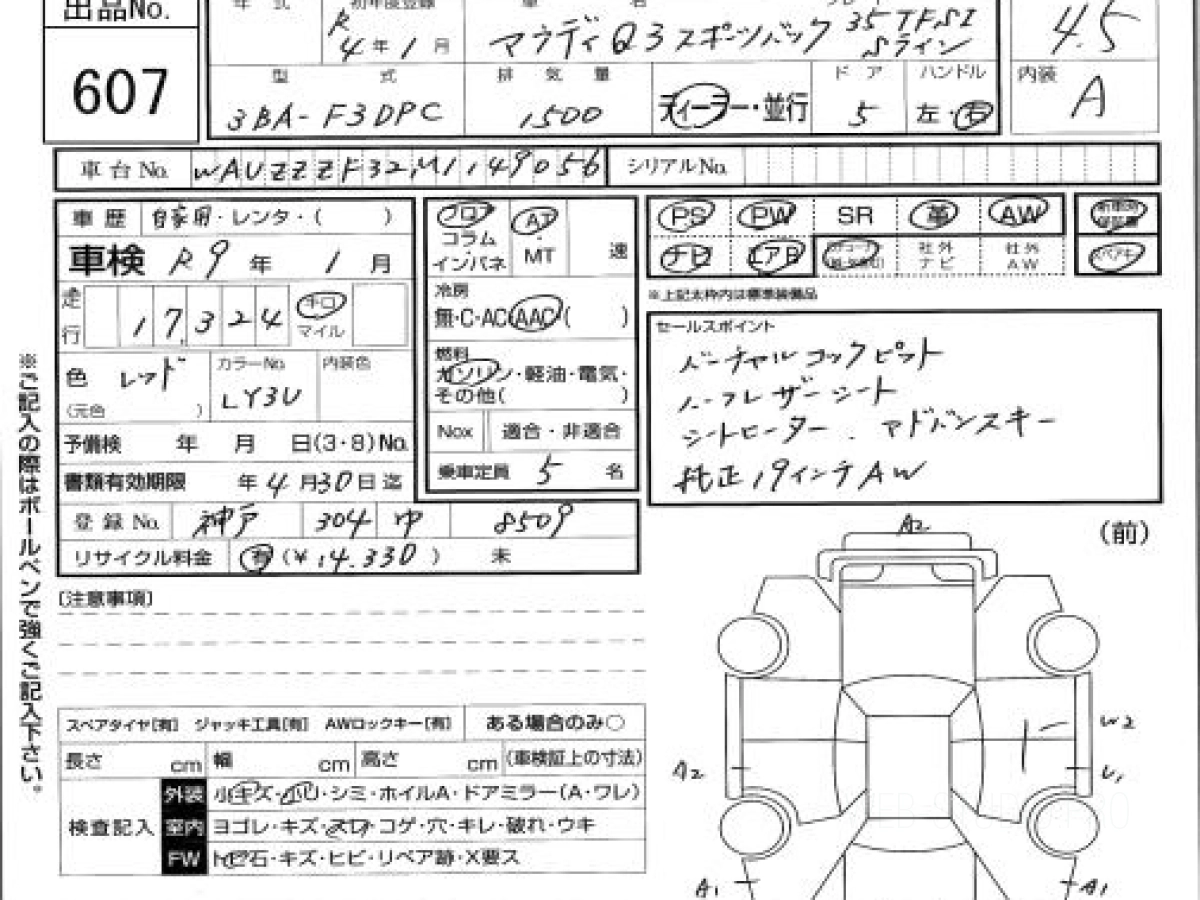 出品No.
607
年 式
初年度登録
R 4年1月
車 名
アウディQ3スポーツバック 35TFSI Sライン
4.5
型 式
3BA-F3DPC
排 気 量
1500
ディーラー・並行
ドア
5
ハンドル
左・右
内装
A
車台No.
WAUZZZF32M1149056
シリアルNo.
車歴 自家用・レンタ・( )
車検 R9年 1月
走行 17,324 キロ マイル
色 レッド
(元色 )
カラーNo.
LY3U
内装色
予備検 年 月 日(3・8)No.
書類有効期限 年4月30日迄
登録No. 神戸 304 ゆ 8509
リサイクル料金 有(¥14,330) 未
フロア
コラム
インパネ
AT
・
MT
速
冷房
無・C・AC・AAC( )
燃料
ガソリン・軽油・電気・
その他( )
Nox 適合・非適合
乗車定員 5 名
PS PW SR 革 AW
ナビ エアB
社外ナビ
社外AW
スペアキー
※上記太枠内は標準装備品
セールスポイント
バーチャルコックピット
ハーフレザーシート
シートヒーター . アドバンスキー
純正19インチAW
※ご記入の際はボールペンで強くご記入下さい。
[注意事項]
スペアタイヤ[有] ジャッキ工具[有] AWロックキー[有] ある場合のみ○
長さ cm 幅 cm 高さ cm (車検証上の寸法)
検査記入
外装 小キズ・小凹・シミ・ホイルA・ドアミラー(A・ワレ)
室内 ヨゴレ・キズ・スレ・コゲ・穴・キレ・破れ・ウキ
FW トビ石・キズ・ヒビ・リペア跡・X要ス
(前)
A2
W2
A2
U1
A1
A1